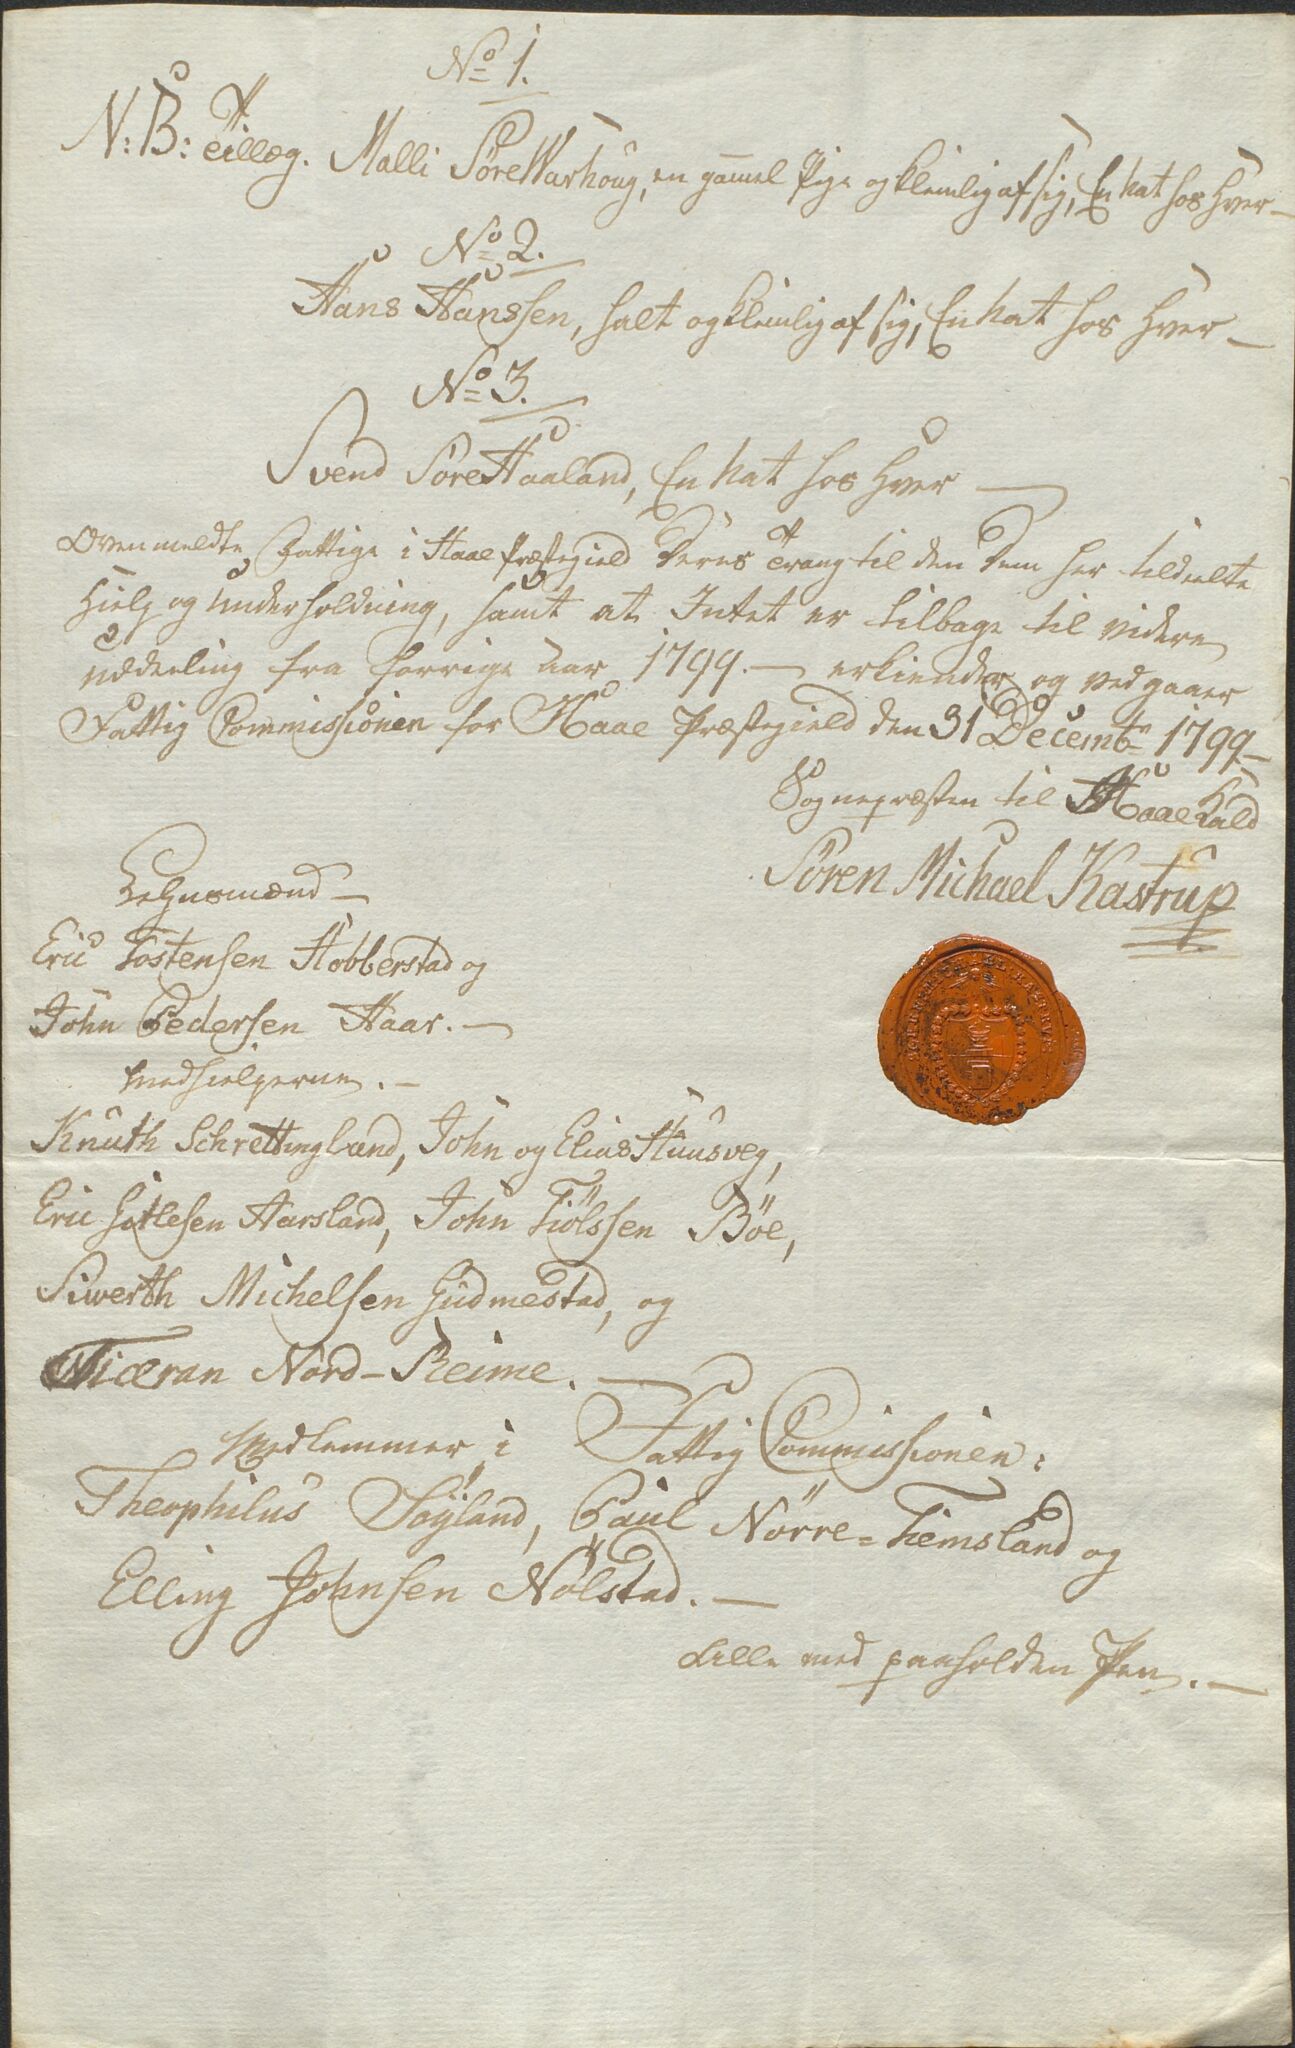 No 1.
N: B: Tillæg. Malli SöreWarhoug, en gammel Pige og kleinlig af sig, En hat hos Hver —
No 2.
Hans Hanssen, halt og kleinlig af sig, En hat hos Hver —
No 3.
Svend SöreHaaland, En hat hos Hver —
Ovenmeldte Fattige i Haae Præstegield Deres Trang til den Dem her tildeelte
Hielp og Underholdning, samt at Intet er tilbage til videre
Uddeeling fra forrige Aar 1799. — erkiender og ved gaaer
Fattig Commissionen for Haae Præstegield den 31 Decembr 1799 —
Sognepræsten til Haae Kald
Sören Michael Kastrup
Lehnsmænd —
Eric Tostensen Hobberstad og
John Pedersen Haar. —
Medhielperne. —
Knuth Schrettingland, John og Elias Huusveg,
Eric Gitlesen Aarsland, John Tiölssen Böe,
Siwerth Michelsen Gudmestad, og
Tiæran Nord-Reime. —
Medlemmer i Fattig Commissionen:
Theophilus Söyland, Paul Nörre-Tiemsland og
Elling Johnsen Nölstad. —
Alle med paaholden Pen. —